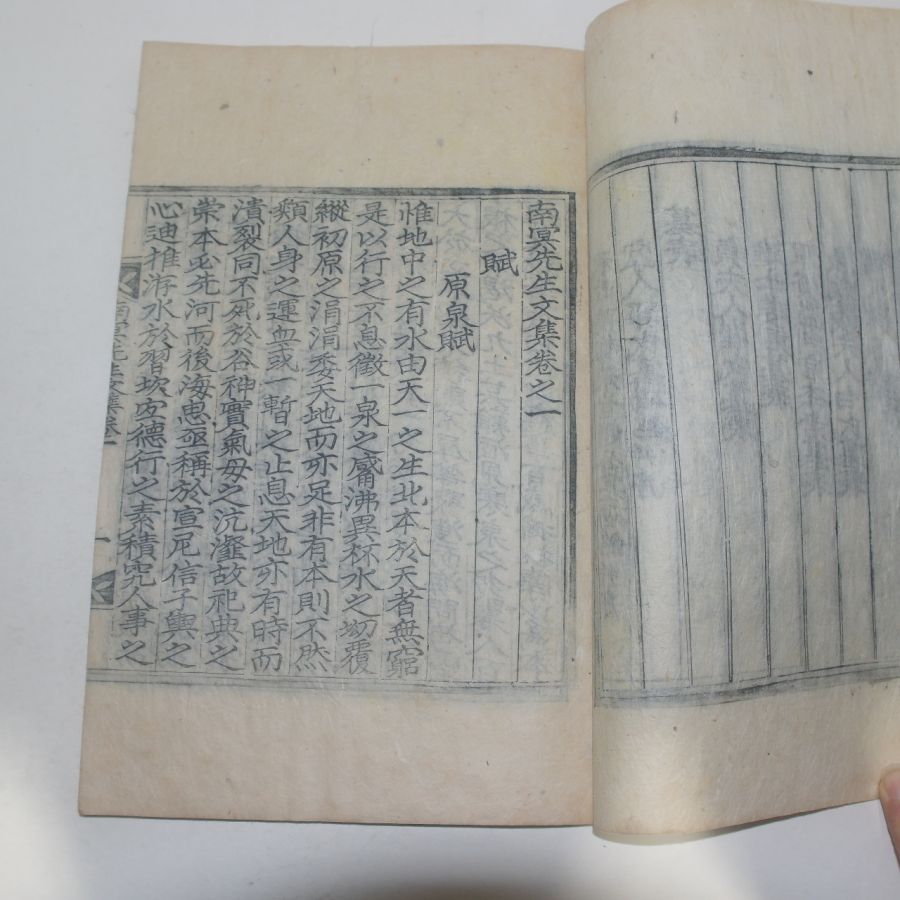 南冥先生文集卷之一
賦
原泉賦
惟地中之有水由天一之生北本於天者無窮
是以行之不息徵一泉之觱沸異杯水之坳覆
縱初原之涓涓委天地而亦足非有本則不然
類人身之運血或一暫之止息天地亦有時而
潰裂同不死於谷神實氣母之沆瀣故祀典之
崇本必先河而後海思亟稱於宣尼信子輿之
心迪推游水於習坎宜德行之素積究人事之
南冥先生文集卷一
一